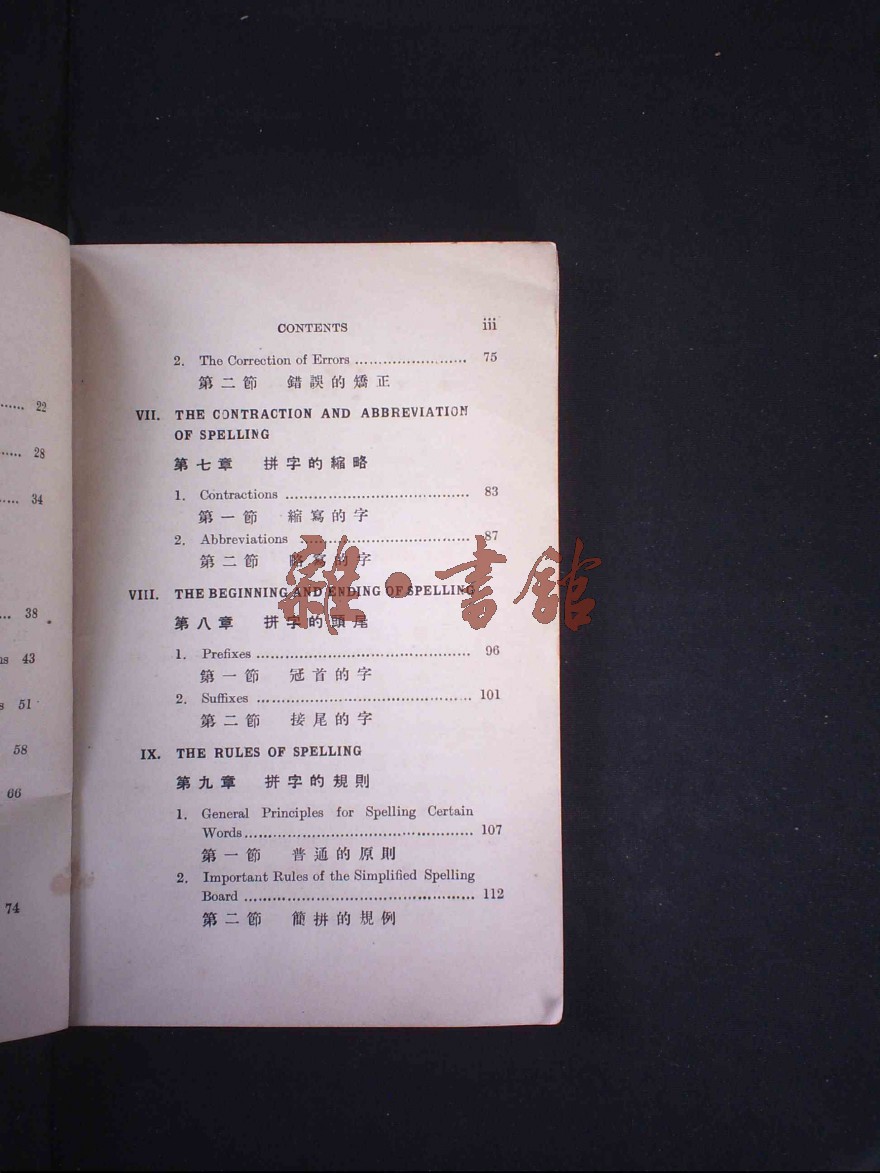 22
28
34
38
ns 43
s 51
58
66
74
CONTENTS iii
2. The Correction of Errors ........................ 75
第二節 錯誤的矯正
VII. THE CONTRACTION AND ABBREVIATION
OF SPELLING
第七章 拼字的縮略
1. Contractions ........................ 83
第一節 縮寫的字
2. Abbreviations ........................ 87
第二節 略寫的字
VIII. THE BEGINNING AND ENDING OF SPELLING
第八章 拼字的頭尾
1. Prefixes ........................ 96
第一節 冠首的字
2. Suffixes ........................ 101
第二節 接尾的字
IX. THE RULES OF SPELLING
第九章 拼字的規則
1. General Principles for Spelling Certain
Words ........................ 107
第一節 普通的原則
2. Important Rules of the Simplified Spelling
Board ........................ 112
第二節 簡拼的規例
雜·書館